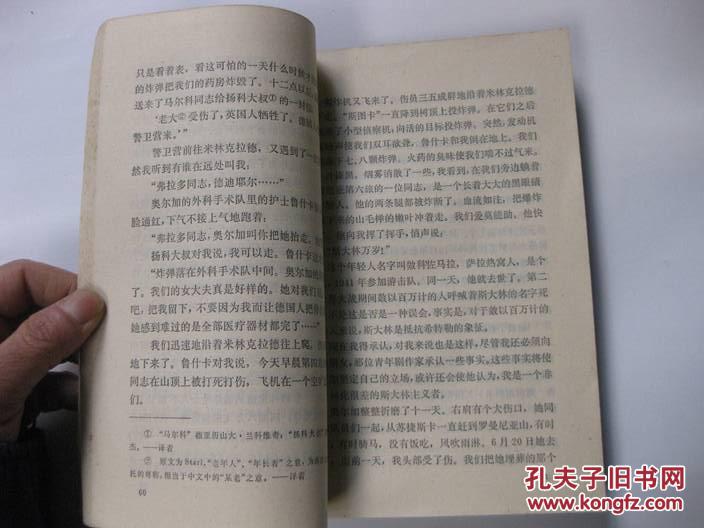 只是看着表，看这可怕的一天什么时候才
的炸弹把我们的药房炸毁了。十二点以后
送来了马尔科同志给扬科大叔①的一封信
“‘老大②受伤了，英国人牺牲了。德
警卫营来。’”
警卫营前往米林克拉德，又遇到了一
然我听到有谁在远处叫我：
“弗拉多同志，德迪耶尔……”
奥尔加的外科手术队里的护士鲁什卡
脸通红，下气不接上气地跑着：
“弗拉多同志，奥尔加叫你把她抬走。
扬科大叔对我说，我可以走。鲁什卡
“炸弹落在外科手术队中间。奥尔加
了。我们的女大夫真是好样的。她对我们
吧，把我留下，不要因为我而让德国人把你
她感到难过的是全部医疗器材都完了……”
我们迅速地沿着米林克拉德往上爬。
地下来了。鲁什卡对我说，今天早晨第四
同志在山顶上被打死打伤，飞机在一个空旷
们。
① “马尔科”指亚历山大·兰科维奇，“扬科大
杰。——译者
② 原文为 Stari，“老年人”、“年长者”之意，为
托的尊称，相当于中文中的“某老”之意。——译者
60
炸机又飞来了。伤员三五成群地沿着米林克拉德
走。“斯图卡”一直降到树顶上投炸弹。在它们之后
了小型侦察机，向活的目标投炸弹。突然，发动机
使我们双耳欲聋。鲁什卡和我倒在地上。我们
下七、八颗炸弹。火药的臭味使我们喘不过气来。
烟雾消散了一些，我看到，在我们旁边躺着
第六旅的一位同志，是一个长着大大的黑眼睛
人，他的两条腿都被炸断了。血流如注，把爆炸
的山毛榉的嫩叶冲着走。我们爱莫能助。他快
向我挥了挥手，悄声说：
大林万岁！”
个年轻人名字叫做科佐马拉，萨拉热窝人，是个
1941年参加游击队。同一天，他就去世了。第二
大战期间数以百万计的人呼喊着斯大林的名字死
不是说是否是一种误会，事实是，对于数以百万计的
说，斯大林是抵抗希特勒的象征。
在我得承认，对我来说也是这样，尽管我还必须向
友，那位青年剧作家承认一些事实，这些事实将使
坚定自己的立场，或许还会使他认为，我是一个非
很差的斯大林主义者。
奥尔加整整折磨了十一天。右肩有个大伤口，她同
员们一起，从苏捷斯卡一直赶到罗曼尼亚山，有时
有时骑马，没有饭吃，风吹雨淋。6月20日她去
前一天，我头部受了伤。我们把她埋葬的那个
孔夫子旧书网
kongfz.com